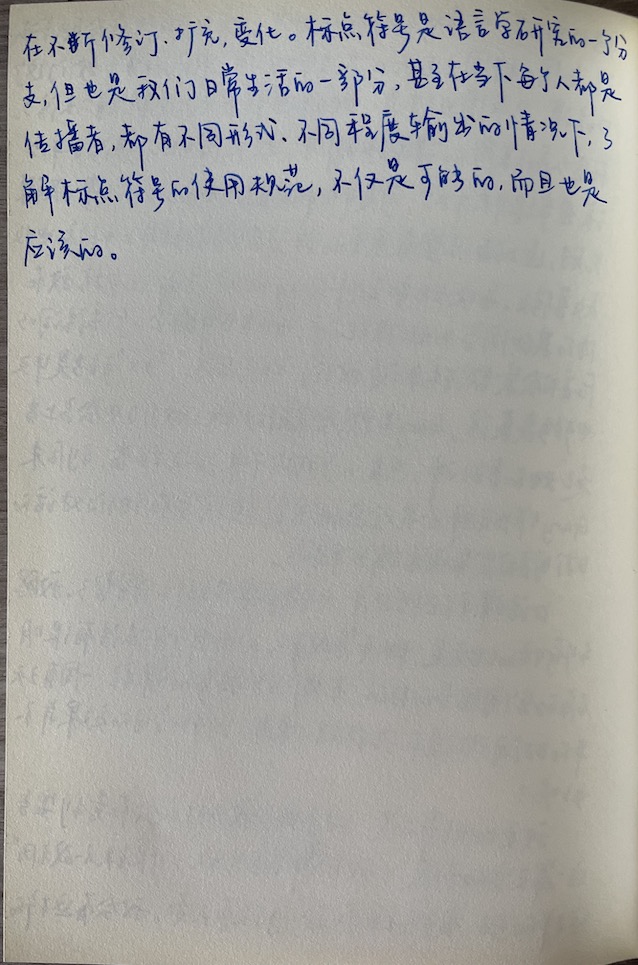 在不断修订、扩充，变化。标点符号是语言学研究的一个分
支，但也是我们日常生活的一部分，甚至在当下每个人都是
传播者，都有不同形式、不同程度输出的情况下，了
解标点符号的使用规范，不仅是可能的，而且也是
应该的。